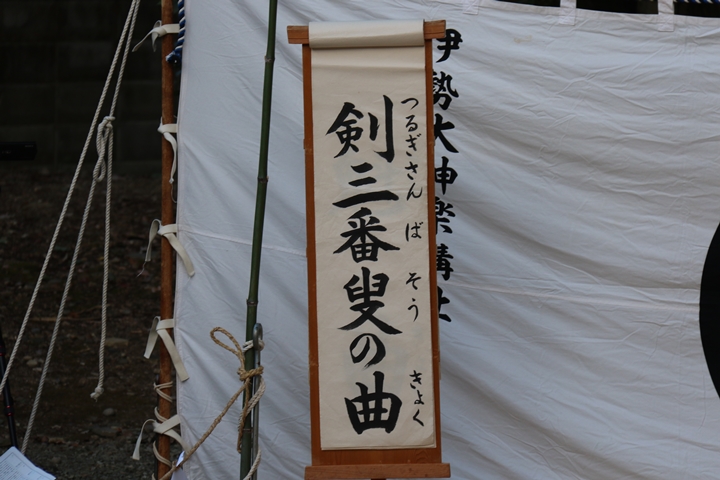 伊勢大神楽講社
つるぎさんばそうきょく
剣三番叟の曲